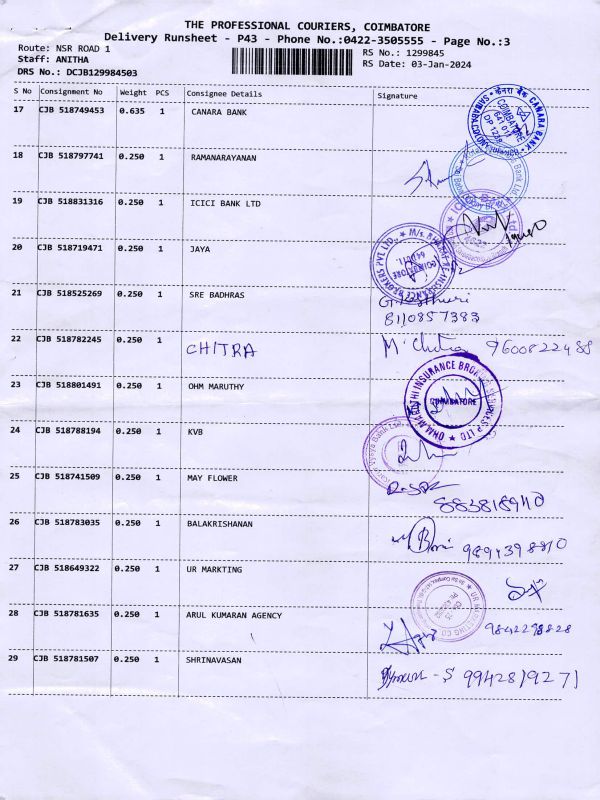 THE PROFESSIONAL COURIERS, COIMBATORE
Delivery Runsheet - P43 - Phone No.:0422-3505555 - Page No.:3
Route: NSR ROAD 1
RS No.: 1299845
Staff: ANITHA
RS Date: 03-Jan-2024
DRS No.: DCJB129984503
S No Consignment No Weight PCS Consignee Details Signature
17 CJB 518749453 0.635 1 CANARA BANK
CANARA BANK
COIMBATORE
641 011
18 CJB 518797741 0.250 1 RAMANARAYANAN
19 CJB 518831316 0.250 1 ICICI BANK LTD
20 CJB 518719471 0.250 1 JAYA
BROKERS PVT LTD.
COIMBATORE
21 CJB 518525269 0.250 1 SRE BADHRAS
8110857383
22 CJB 518782245 0.250 1 CHITRA M. Chitra 9600822488
23 CJB 518801491 0.250 1 OHM MARUTHY
COIMBATORE
24 CJB 518788194 0.250 1 KVB
25 CJB 518741509 0.250 1 MAY FLOWER
883818940
26 CJB 518783035 0.250 1 BALAKRISHANAN
9894398810
27 CJB 518649322 0.250 1 UR MARKTING
UR MARKETING CO
28 CJB 518781635 0.250 1 ARUL KUMARAN AGENCY 9842298828
29 CJB 518781507 0.250 1 SHRINAVASAN 9942819271